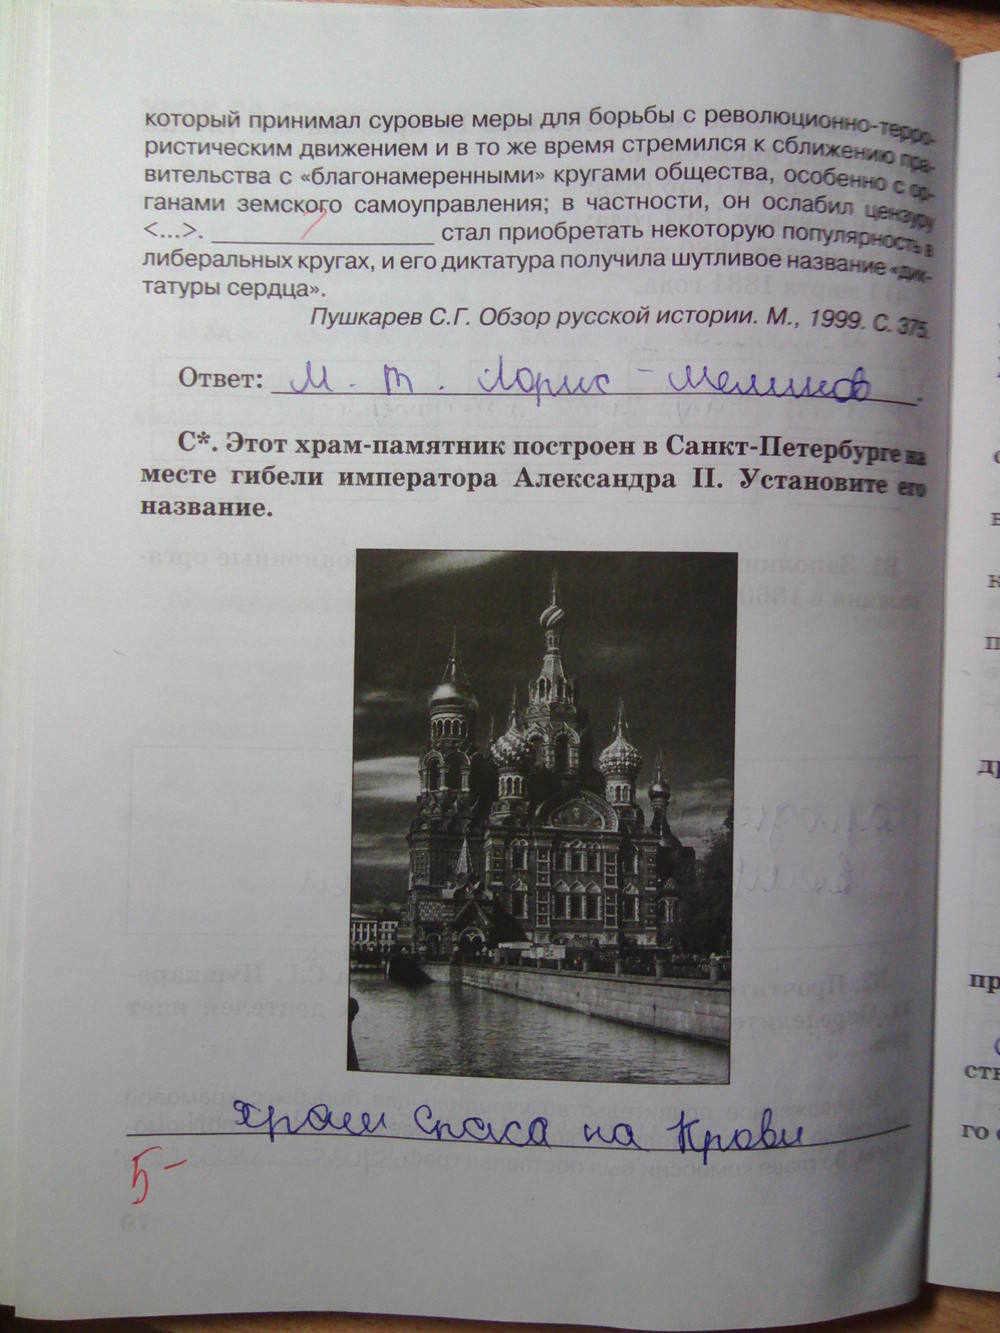 который принимал суровые меры для борьбы с революционно-терро-
ристическим движением и в то же время стремился к сближению пра-
вительства с «благонамеренными» кругами общества, особенно с ор-
ганами земского самоуправления; в частности, он ослабил цензуру
<...>. ________________ стал приобретать некоторую популярность в
либеральных кругах, и его диктатура получила шутливое название «дик-
татуры сердца».
Пушкарев С.Г. Обзор русской истории. М., 1999. С. 375.
Ответ: М. Т. Лорис - Меликов.
С*. Этот храм-памятник построен в Санкт-Петербурге на
месте гибели императора Александра II. Установите его
название.
Храм Спаса на Крови
5-